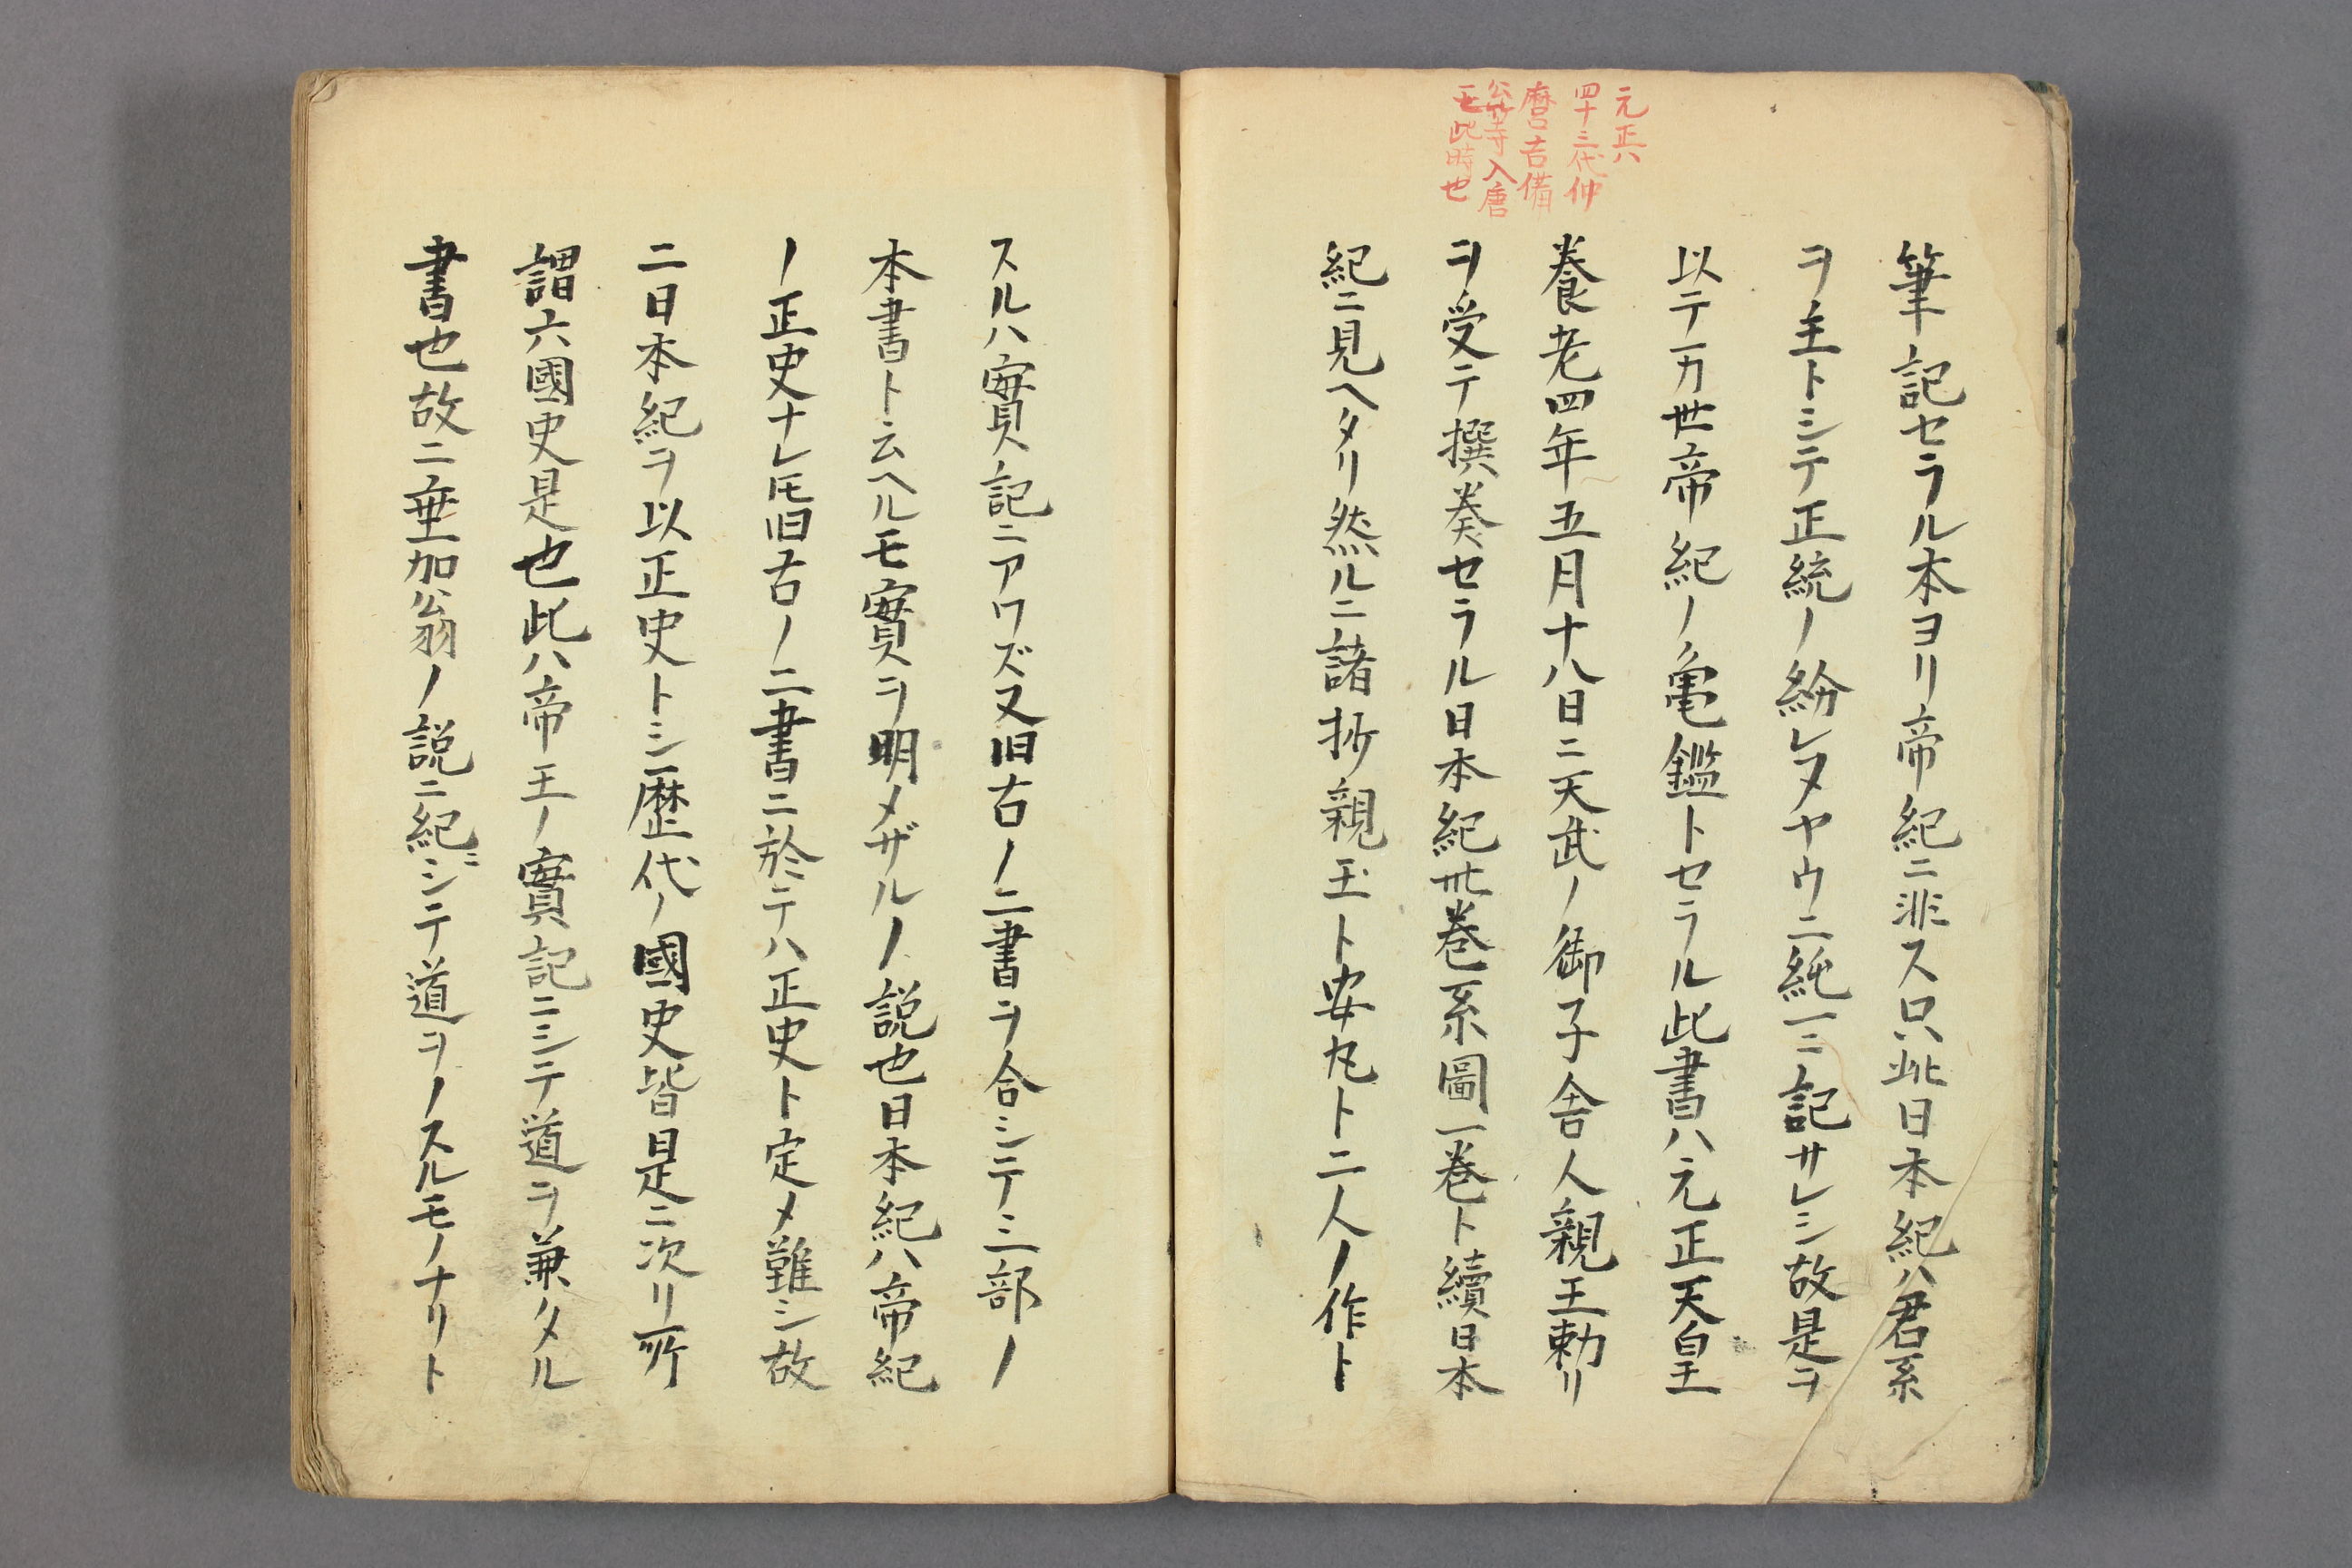 元正ハ
四十三代仲
麿吉備
公等入唐
モ此時也
筆記セラル本ヨリ帝紀ニ非ス只此日本紀ハ君系
ヲ主トシテ正統ノ紛レヌヤウニ純一ニ記サレシ故是ヲ
以テ万世帝紀ノ亀鑑トセラル此書ハ元正天皇
養老四年五月十八日ニ天武ノ御子舎人親王勅リ
ヲ受テ撰奏セラル日本紀卅巻系圖一巻ト續日本
紀ニ見ヘタリ然ルニ諸抄親王ト安丸ト二人ノ作ト
スルハ實記ニアワズ又旧古ノ二書ヲ合シテ三部ノ
本書ト云ヘルモ實ヲ明メザルノ説也日本紀ハ帝紀
ノ正史ナレ𪜈旧古ノ二書ニ於テハ正史ト定メ難シ故
ニ日本紀ヲ以正史トシ歴代ノ國史皆是ニ次リ所
謂六國史是也此ハ帝王ノ實記ニシテ道ヲ兼タル
書也故ニ垂加翁ノ説ニ紀ニシテ道ヲノスルモノナリト